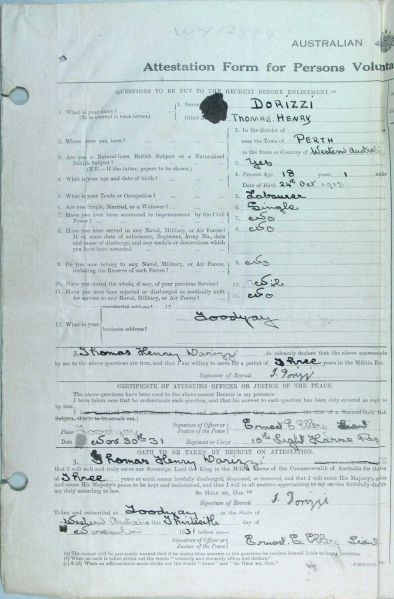 WX12884
AUSTRALIAN
Attestation Form for Persons Volunta
QUESTIONS TO BE PUT TO THE RECRUIT BEFORE ENLISTMENT
1. What is your name? 1. Name DORIZZI
(To be inserted in block letters.) Other THOMAS HENRY
2. In the district of
2. Where were you born? near the Town of PERTH
in the State or Country of Western Austral
3. Are you a Natural-born British Subject or a Naturalized British Subject? 3. Yes
(N.B.—If the latter, papers to be shown.)
4. What is your age and date of birth? 4. Present Age 18 years 1
Date of Birth 24th Oct 1913
5. What is your Trade or Occupation? 5. Labourer
6. Are you Single, Married, or a Widower? 6. Single
7. Have you ever been sentenced to imprisonment by the Civil Power? 7. No
8. Have you ever served in any Naval, Military, or Air Forces? 8. No
If so, state date of enlistment, Regiment, Army No., date
and cause of discharge, and any medals or decorations which
you have been awarded
9. Do you now belong to any Naval, Military, or Air Forces, 9. No
including the Reserve of such Forces?
10. Have you stated the whole, if any, of your previous Service? 10.
11. Have you ever been rejected or discharged as medically unfit 11. No
for service in any Naval, Military, or Air Forces?
12. What is your business address? Toodyay
I, Thomas Henry Dorizzi do solemnly declare that the above answers
by me to the above questions are true, and that I am willing to serve for a period of Three years in the Militia For
Signature of Recruit
CERTIFICATE OF ATTESTING OFFICER OR JUSTICE OF THE PEACE.
The above questions have been read to the above-named Recruit in my presence.
I have taken care that he understands each question, and that his answer to each question has been duly entered
by him.
Place Toodyay Signature of Officer or Justice of the Peace
Date Nov 30th 31 Regiment or Corps 10th Light Horse Reg
OATH TO BE TAKEN BY RECRUIT ON ATTESTATION.
I, Thomas Henry Dorizzi
that I will well and truly serve our Sovereign Lord the King in the Militia Forces of the Commonwealth of Australia for
Three years or until sooner lawfully discharged, dismissed, or removed, and that I will resist His Majesty's
and cause His Majesty's peace to be kept and maintained, and that I will in all matters appertaining to my service faithfully
my duty according to law.
SO HELP ME, GOD.
Signature of Recruit
Taken and subscribed at Toodyay in
Western Australia this Thirtieth day of
November 1931 before me—
Signature of Officer or
Justice of the Peace